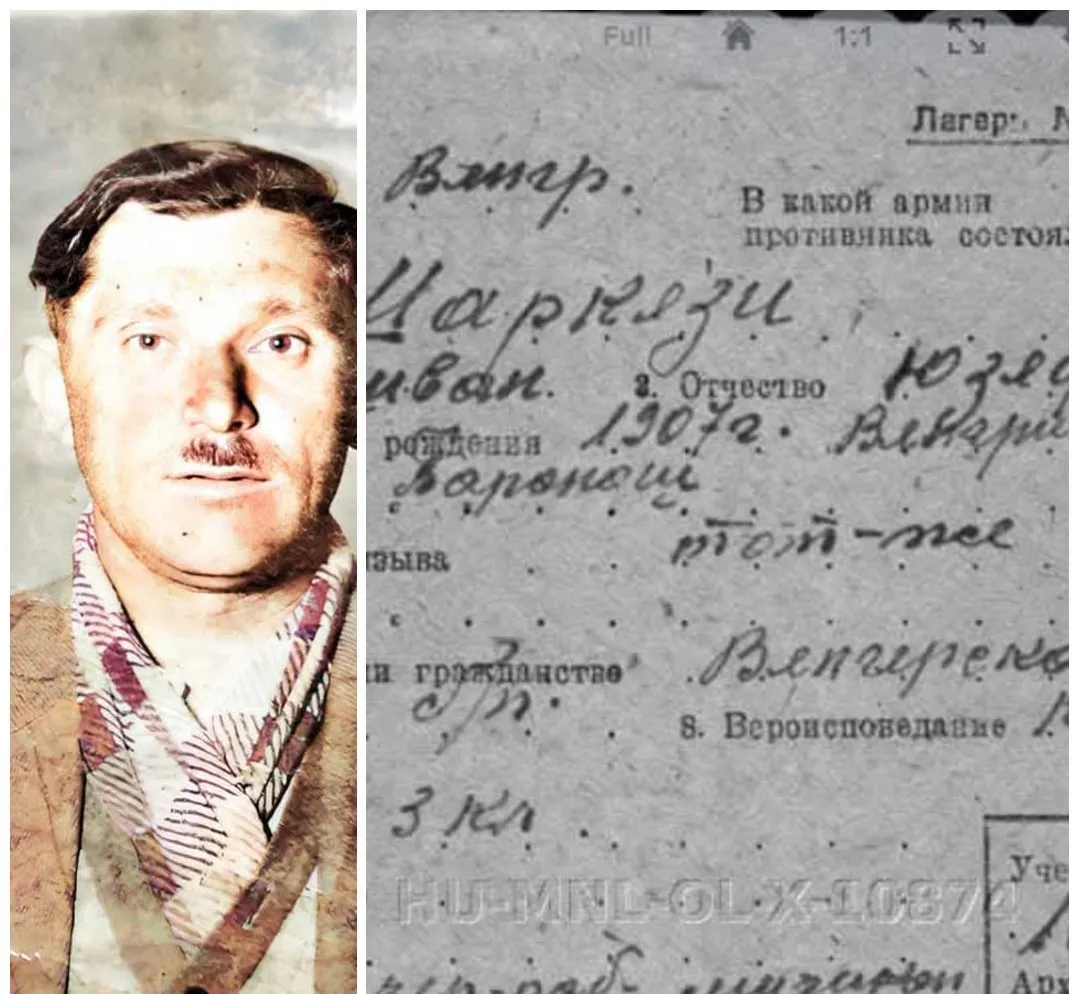 Full 1:1
Лагерь
Венгр.
В какой армии
противника состоя
Царкези
Иван. 2. Отчество Юзе
рождения 1907г. Венгри
тот-же
зыва
и гражданство Венгерско
8. Вероисповедание
3 кл.
Уче
HU-MNL-OL-X-10874
Арх